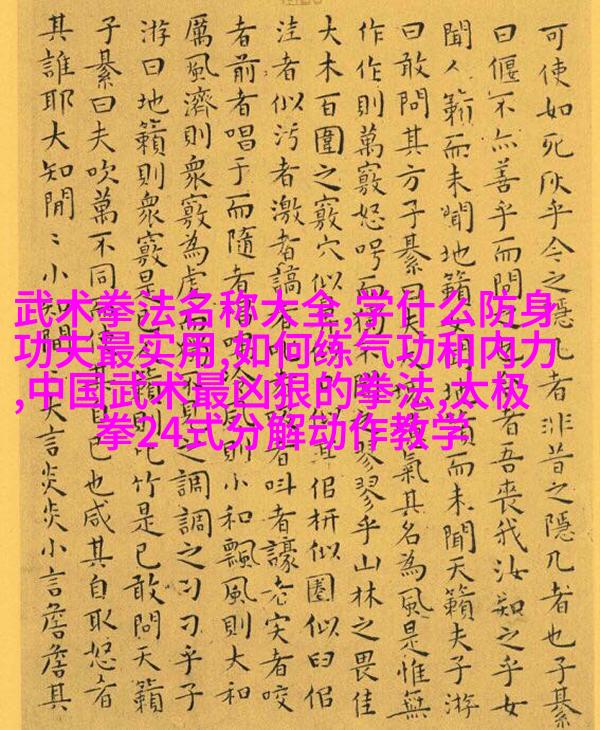 武术拳法名称大全,学什么防身
功夫最实用,如何练气功和内力
,中国武术最凶狠的拳法,太极
拳24式分解动作教学
可使如死灰乎今之隱几者非昔之隱几者也子綦
曰偃不亦善乎而問之者吾喪我汝知之乎女
聞人籟而未聞地籟女籟而未聞天籟夫子游
曰敢問其方子綦曰夫氣其名為風是惟無
作作則萬竅怒呺而翏翏乎山林之畏佳
大木百圍之竅穴似佀枅似圈似臼佀
洼者似污者激者謞者者叫者譹者宎者咬
者前者唱于而隨者則小和飄風則大和
厲風濟則衆竅為虛而之調調之刁刁乎子
游曰地籟則衆竅是已竹是已敢問天籟
子綦曰夫吹萬不同而使其自己也咸其自取怒者
其誰耶大知閒〻小知閒大言炎炎小言詹詹其